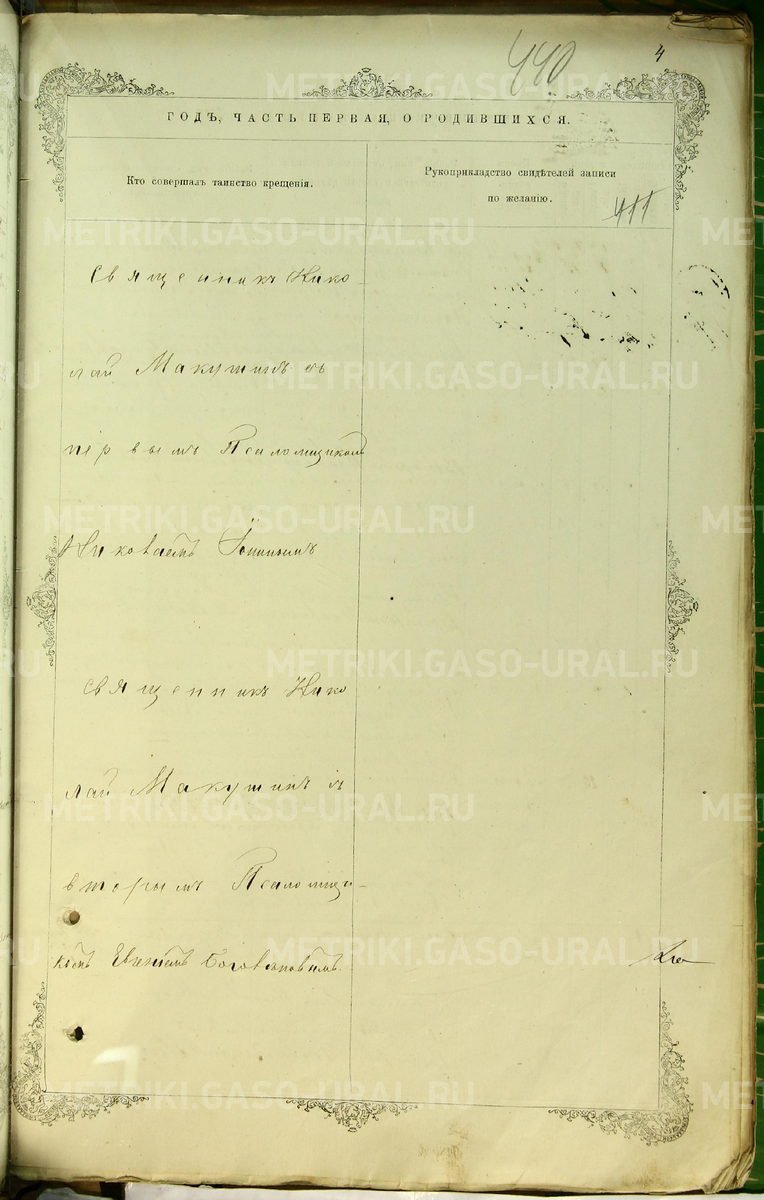 440
4
ГОДЪ, ЧАСТЬ ПЕРВАЯ, О РОДИВШИХСЯ.
Кто совершалъ таинство крещенія.
Рукоприкладство свидѣтелей записи
по желанію.
411
Священникъ Нико-
лай Макушинъ съ
первымъ Псаломщикомъ
Священникъ Нико
лай Макушинъ съ
вторымъ Псаломщи-
комъ Евгеніемъ
METRIKI.GASO-URAL.RU